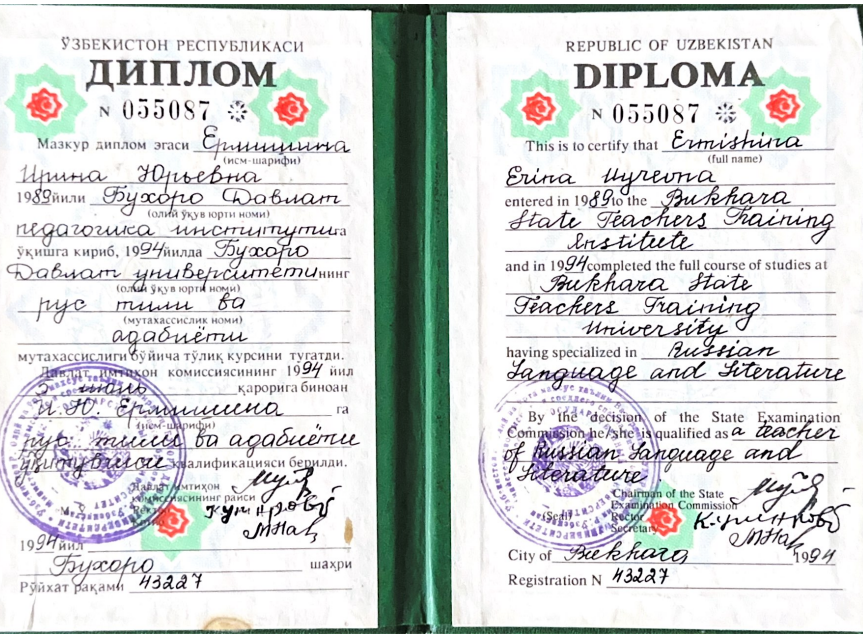 ЎЗБЕКИСТОН РЕСПУБЛИКАСИ
ДИПЛОМ
N 055087
Мазкур диплом эгаси Ермишина
(исм-шарифи)
Ирина Юрьевна
1989йили Бухоро Давлат
(олий ўқув юрти номи)
педагогика институтига
ўқишга кириб, 1994йилда Бухоро
Давлат университетининг
(олий ўқув юрти номи)
рус тили ва
(мутахассислик номи)
адабиёти
мутахассислиги бўйича тўлиқ курсини тугатди.
Давлат имтиҳон комиссиясининг 1994 йил
5 июль қарорига биноан
И.Ю. Ермишина га
(исм-шарифи)
рус тили ва адабиёти
ўқитувчиси квалификацияси берилди.
Давлат имтиҳон
комиссиясининг раиси
Ректор
1994йил
Бухоро шаҳри
Рўйхат рақами 43227
REPUBLIC OF UZBEKISTAN
DIPLOMA
N 055087
This is to certify that Ermishina
(full name)
Erina Uyrevna
entered in 1989to the Bukhara
State Teachers Training
Institute
and in 1994completed the full course of studies at
Bukhara State
Teachers Training
University
having specialized in Russian
Language and Literature
By the decision of the State Examination
Commission he/she is qualified as a teacher
of Russian Language and
Literature
Chairman of the State
Examination Commission
(Seal) Rector
Secretary
City of Bukhara 1994
Registration N 43227